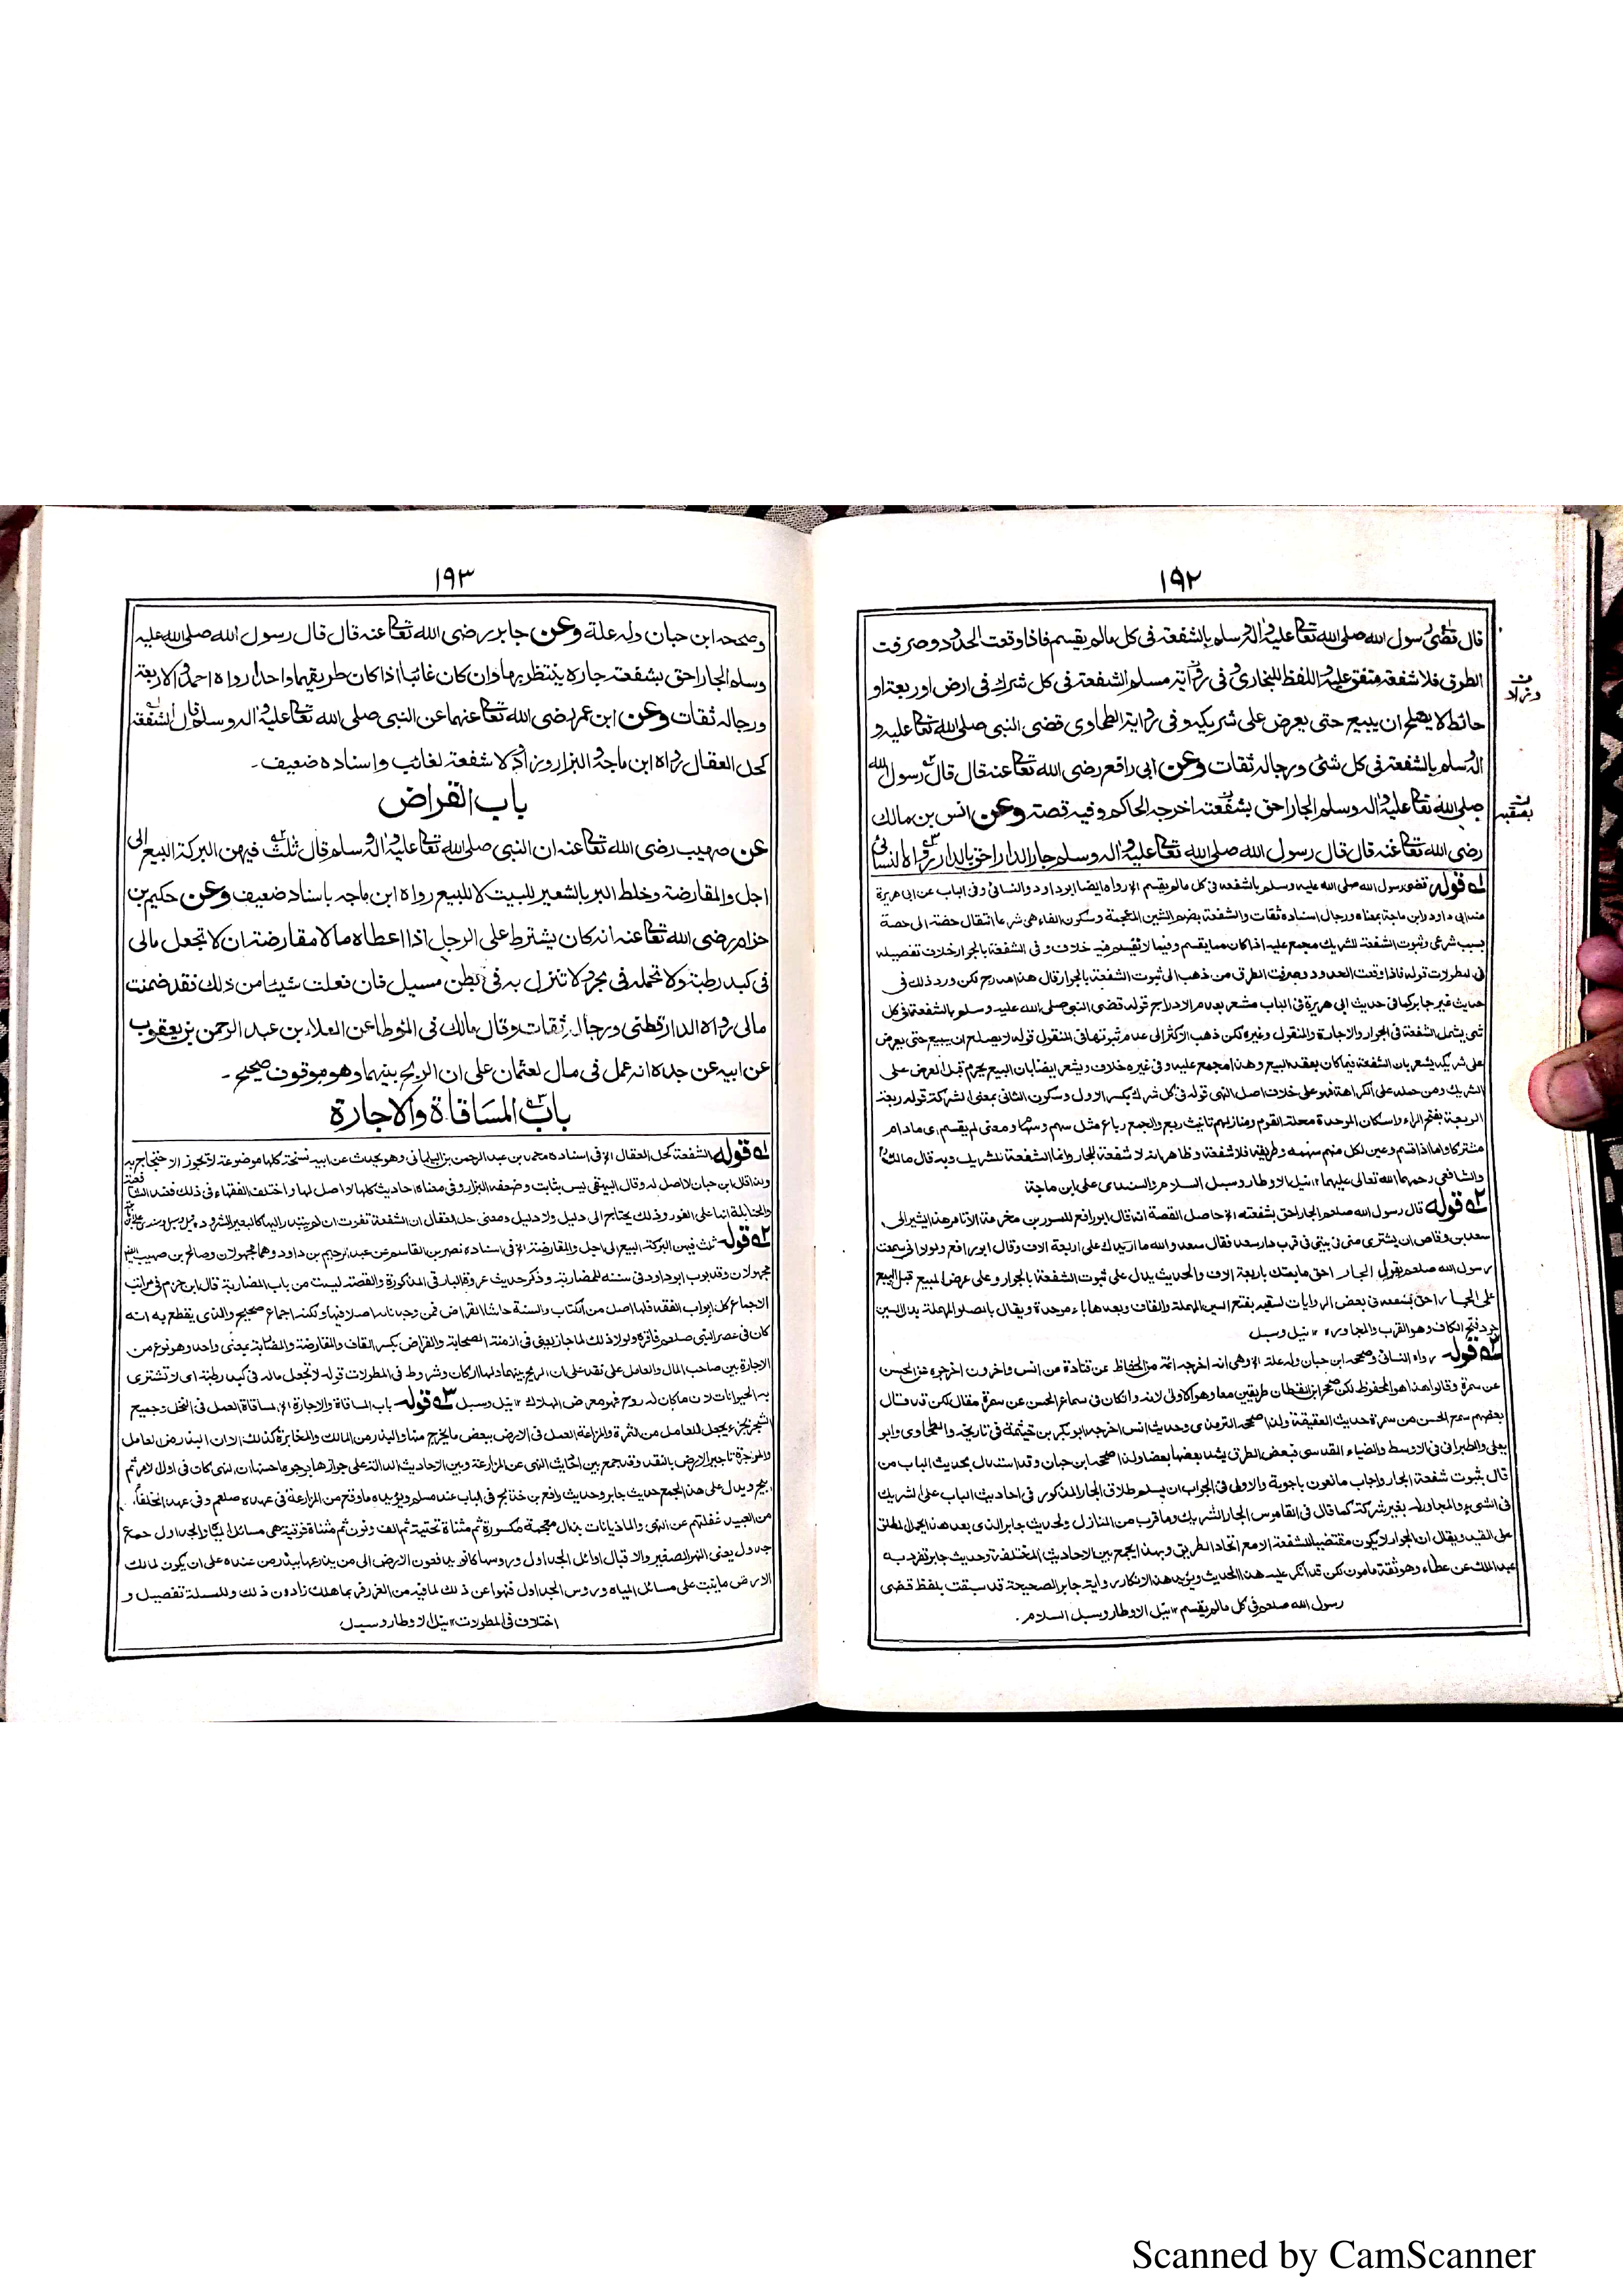 ١٩٢
قال قضى رسول الله صلى الله تعالى عليه وآله وسلم بالشفعة فى كل مالم يقسم فاذا وقعت الحدود وصرفت
الطرق فلا شفعة متفق عليه واللفظ للبخارى وفى رواية مسلم الشفعة فى كل شرك فى ارض او ربعة او
حائط لا يصلح ان يبيع حتى يعرض على شريكه وفى رواية الطحاوى قضى النبى صلى الله تعالى عليه و
آله وسلم بالشفعة فى كل شئى ورجاله ثقات وعن ابى رافع رضى الله تعالى عنه قال قال رسول الله
صلى الله تعالى عليه وآله وسلم الجار احق بشفعته اخرجه الحاكم وفيه قصة وعن انس بن مالك
رضى الله تعالى عنه قال قال رسول الله صلى الله تعالى عليه وآله وسلم جار الدار احق بالدار رواه النسائى
وزاد
بصقبه
قوله قضى رسول الله صلى الله عليه وسلم بالشفعة فى كل مالم يقسم الخ رواه ايضا ابو داود والنسائى وفى الباب عن ابى هريرة
عند ابى داود وابن ماجة بمعناه ورجال اسناده ثقات والشفعة بضم الشين المعجمة وسكون الفاء هى شرعا انتقال حصة الى حصة
بسبب شرعى وثبوت الشفعة للشريك مجمع عليه اذا كان مما يقسم وفيما لا يقسم فيه خلاف وفى الشفعة بالجوار خلاف تفصيله
فى المطولات قوله فاذا وقعت الحدود وصرفت الطرق من ذهب الى ثبوت الشفعة بالجوار قال هذا مدرج لكن ورد ذلك فى
حديث غير جابر كما فى حديث ابى هريرة فى الباب مشعر بعدم الادراج قوله قضى النبى صلى الله عليه وسلم بالشفعة فى كل
شئ يشمل الشفعة فى الجوار والاجارة والمنقول وغيره لكن ذهب الاكثر الى عدم ثبوتها فى المنقول قوله لا يصلح ان يبيع حتى يعرض
على شريكه يشعر بان الشفعة فيما كان بعقد البيع وهذا مجمع عليه وفى غيره خلاف ويشعر ايضا بان البيع يحرم قبل العرض على
الشريك ومن حمله على الكراهة فهو على خلاف اصل النهى قوله فى كل شرك بكسر الاول وسكون الثانى بمعنى الشركة قوله ربعة
الربعة بفتح الراء واسكان الموحدة محلة القوم ومنازلهم تانيث ربع والجمع رباع مثل سهم وسهام ومعنى لم يقسم اى ما دام
مشتركا واما اذا قسم وعين لكل منهم سهمه وطريقه فلا شفعة وظاهر انه لا شفعة للجار وانما الشفعة للشريك وبه قال مالك
والشافعى رحمهما الله تعالى عليهما ١٢ نيل الاوطار وسبل السلام والسندى على ابن ماجة
قوله قال رسول الله صلعم الجار احق بشفعته الخ حاصل القصة انه قال ابو رافع للمسور بن مخرمة الا تامر هذا يشير الى
سعد بن وقاص ان يشترى منى بيتى فى قرب دار سعد فقال سعد والله ما ازيدك على اربعة الاف وقال ابو رافع ولولا انى سمعت
رسول الله صلعم يقول الجار احق ما بعتك باربعة الاف والحديث يدل على ثبوت الشفعة بالجوار وعلى عرض المبيع قبل البيع
على الجار احق بشفعه فى بعض الروايات لسقبه بفتح السين المهملة والقاف وبعدها باء موحدة ويقال بالصاد المهملة بدل السين
القاف وهو القرب والمجاورة ١٢ نيل وسبل
قوله رواه النسائى وصححه ابن حبان وله علة الخ وهى انه اخرجه ائمة من الحفاظ عن قتادة من انس واخرون اخرجوه عن الحسن
عن سمرة وقالوا هذا هو المحفوظ لكن صحح ابن القطان طريقين معا وهو الاولى لانه وان كان فى سماع الحسن عن سمرة مقال لكن قد قال
بعضهم سمع الحسن من سمرة حديث العقيقة ولذا صححه الترمذى وحديث انس اخرجه ابو بكر بن خيثمة فى تاريخه والطحاوى وابو
يعلى والطبرانى فى الاوسط والضياء القدسى فبعض الطرق يشد بعضها بعضا ولذا صححه ابن حبان وقد استدل بحديث الباب من
قال بثبوت شفعة الجار واجاب مانعون باجوبة والاولى فى الجواب ان يسلم طلاق الجار المذكور فى احاديث الباب على الشريك
فى الشئ والمجاور له بغير شركة كما قال فى القاموس الجار الشريك وما قرب من المنازل ولحديث جابر الذى بعد هذا يحمل المطلق
على القيد ويقال ان الجوار لا يكون مقتضيا للشفعة الا مع اتحاد الطريق وبهذا يجمع بين الاحاديث المختلفة وحديث جابر تفرد به
عبد الملك عن عطاء وهو ثقة مامون لكن قد انكر عليه هذا الحديث ويؤيد هذا الانكار رواية جابر الصحيحة قد سبقت بلفظ قضى
رسول الله صلعم فى كل مالم يقسم ١٢ نيل الاوطار وسبل السلام.
١٩٣
وصححه ابن حبان وله علة وعن جابر رضى الله تعالى عنه قال قال رسول الله صلى الله عليه
وسلم الجار احق بشفعة جاره ينتظر بها وان كان غائبا اذا كان طريقهما واحدا رواه احمد والاربعة
ورجاله ثقات وعن ابن عمر رضى الله تعالى عنهما عن النبى صلى الله تعالى عليه وآله وسلم قال الشفعة
كحل العقال رواه ابن ماجة والبزار وزاد لا شفعة لغائب واسناده ضعيف۔
باب القراض
عن صهيب رضى الله تعالى عنه ان النبى صلى الله تعالى عليه وآله وسلم قال ثلث فيهن البركة البيع الى
اجل والمقارضة وخلط البر بالشعير للبيت لا للبيع رواه ابن ماجه باسناد ضعيف وعن حكيم بن
حزام رضى الله تعالى عنه انه كان يشترط على الرجل اذا اعطاه مالا مقارضة ان لا تجعل مالى
فى كبد رطبة ولا تحمله فى بحر ولا تنزل به فى بطن مسيل فان فعلت شيئا من ذلك فقد ضمنت
مالى رواه الدارقطنى ورجاله ثقات وقال مالك فى المؤطا عن العلاء بن عبد الرحمن بن يعقوب
عن ابيه عن جده انه عمل فى مال لعثمان على ان الربح بينهما وهو موقوف صحيح۔
باب المساقاة والاجارة
قوله الشفعة كحل العقال الخ فى اسناده محمد بن عبد الرحمن بن البيلمانى وهو يحدث عن ابيه نسخة كلها موضوعة لا يجوز الاحتجاج به
وبه قال ابن حبان لا اصل له وقال البيهقى ليس بثابت وضعفه البزار وفى معناه احاديث كلها لا اصل لها واختلف الفقهاء فى ذلك فعند
والحنابلة انها على الفور وذلك يحتاج الى دليل ولا دليل ومعنى حل العقال ان الشفعة تفوت ان لم يبتدر اليها كالبعير الشرود
قوله ثلث فيهن البركة البيع الى اجل والمقارضة الخ فى اسناده نصير بن القاسم عن عبد الرحيم بن داود وهما مجهولان وصالح بن صهيب
مجهولان وقد بوب ابو داود فى سننه للمضاربة وذكر حديث عروة البارقى المذكورة والقصة ليست من باب المضاربة قال ابن حزم فى مراتب
الاجماع كل ابواب الفقه فلها اصل من الكتاب والسنة حاشا القراض فمن وجدنا له اصلا فيهما ولكنه اجماع صحيح والذى يقطع به انه
كان فى عصر النبى صلعم فاقره ولولا ذلك لما جاز يبقى فى ازمنة الصحابة والقراض بكسر القاف والمقارضة والمضاربة بمعنى واحد وهو نوع من
الاجارة بين صاحب المال والعامل على نقد على ان الربح بينهما ولها اركان وشروط فى المطولات قوله لا تجعل ماله فى كبد رطبة اى لا تشترى
به الحيوانات لان ما كان له روح فهو معرض الهلاك ١٢ نيل وسبل قوله باب المساقاة والاجارة الخ المساقاة العمل فى النخل وجميع
الشجر بجزء يجعل للعامل من الثمرة والمزارعة العمل فى الارض ببعض ما يخرج منها والبذر من المالك والمخابرة كذلك الا ان البذر من العامل
والمؤاجرة تاجير الارض بالنقد وقد جمع بين احاديث النهى عن المزارعة وبين الاحاديث الدالة على جوازها بوجوه احسنها ان النهى كان فى اول الامر ثم
ابيح ويدل على هذا الجمع حديث جابر وحديث رافع بن خديج فى الباب عند مسلم ويؤيده ما وقع من المزارعة فى عهده صلعم وفى عهد الخلفاء.
من العبيد غفلتهم عن النهى والماذيانات بذال معجمة مكسورة ثم مثناة تحتية ثم الف ونون ثم مثناة فوقية هى مسائل الماء والجداول جمع
جدول يعنى النهر الصغير والاقبال اوائل الجداول ورؤسها كانوا يدفعون الارض الى من يزرعها ببذر من عنده على ان يكون لمالك
الارض ما ينبت على مسائل المياه ورؤس الجداول فنهوا عن ذلك لما فيه من الغرر فربما هلك ذا دون ذلك وللمسئلة تفصيل و
اختلاف فى المطولات ١٢ نيل الاوطار وسبل
Scanned by CamScanner